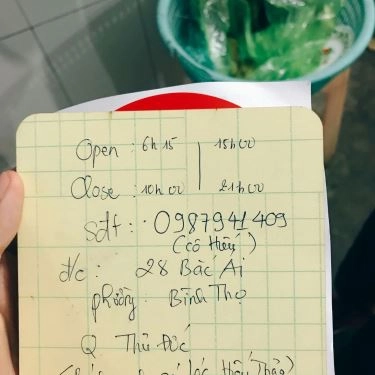 Open : 6h15 | 15h00
Close : 10h00 | 21h00
sdt : 0987941409
(cô Hiếu)
đ/c : 28 Bác Ái
phường Bình Thọ
Q Thủ Đức